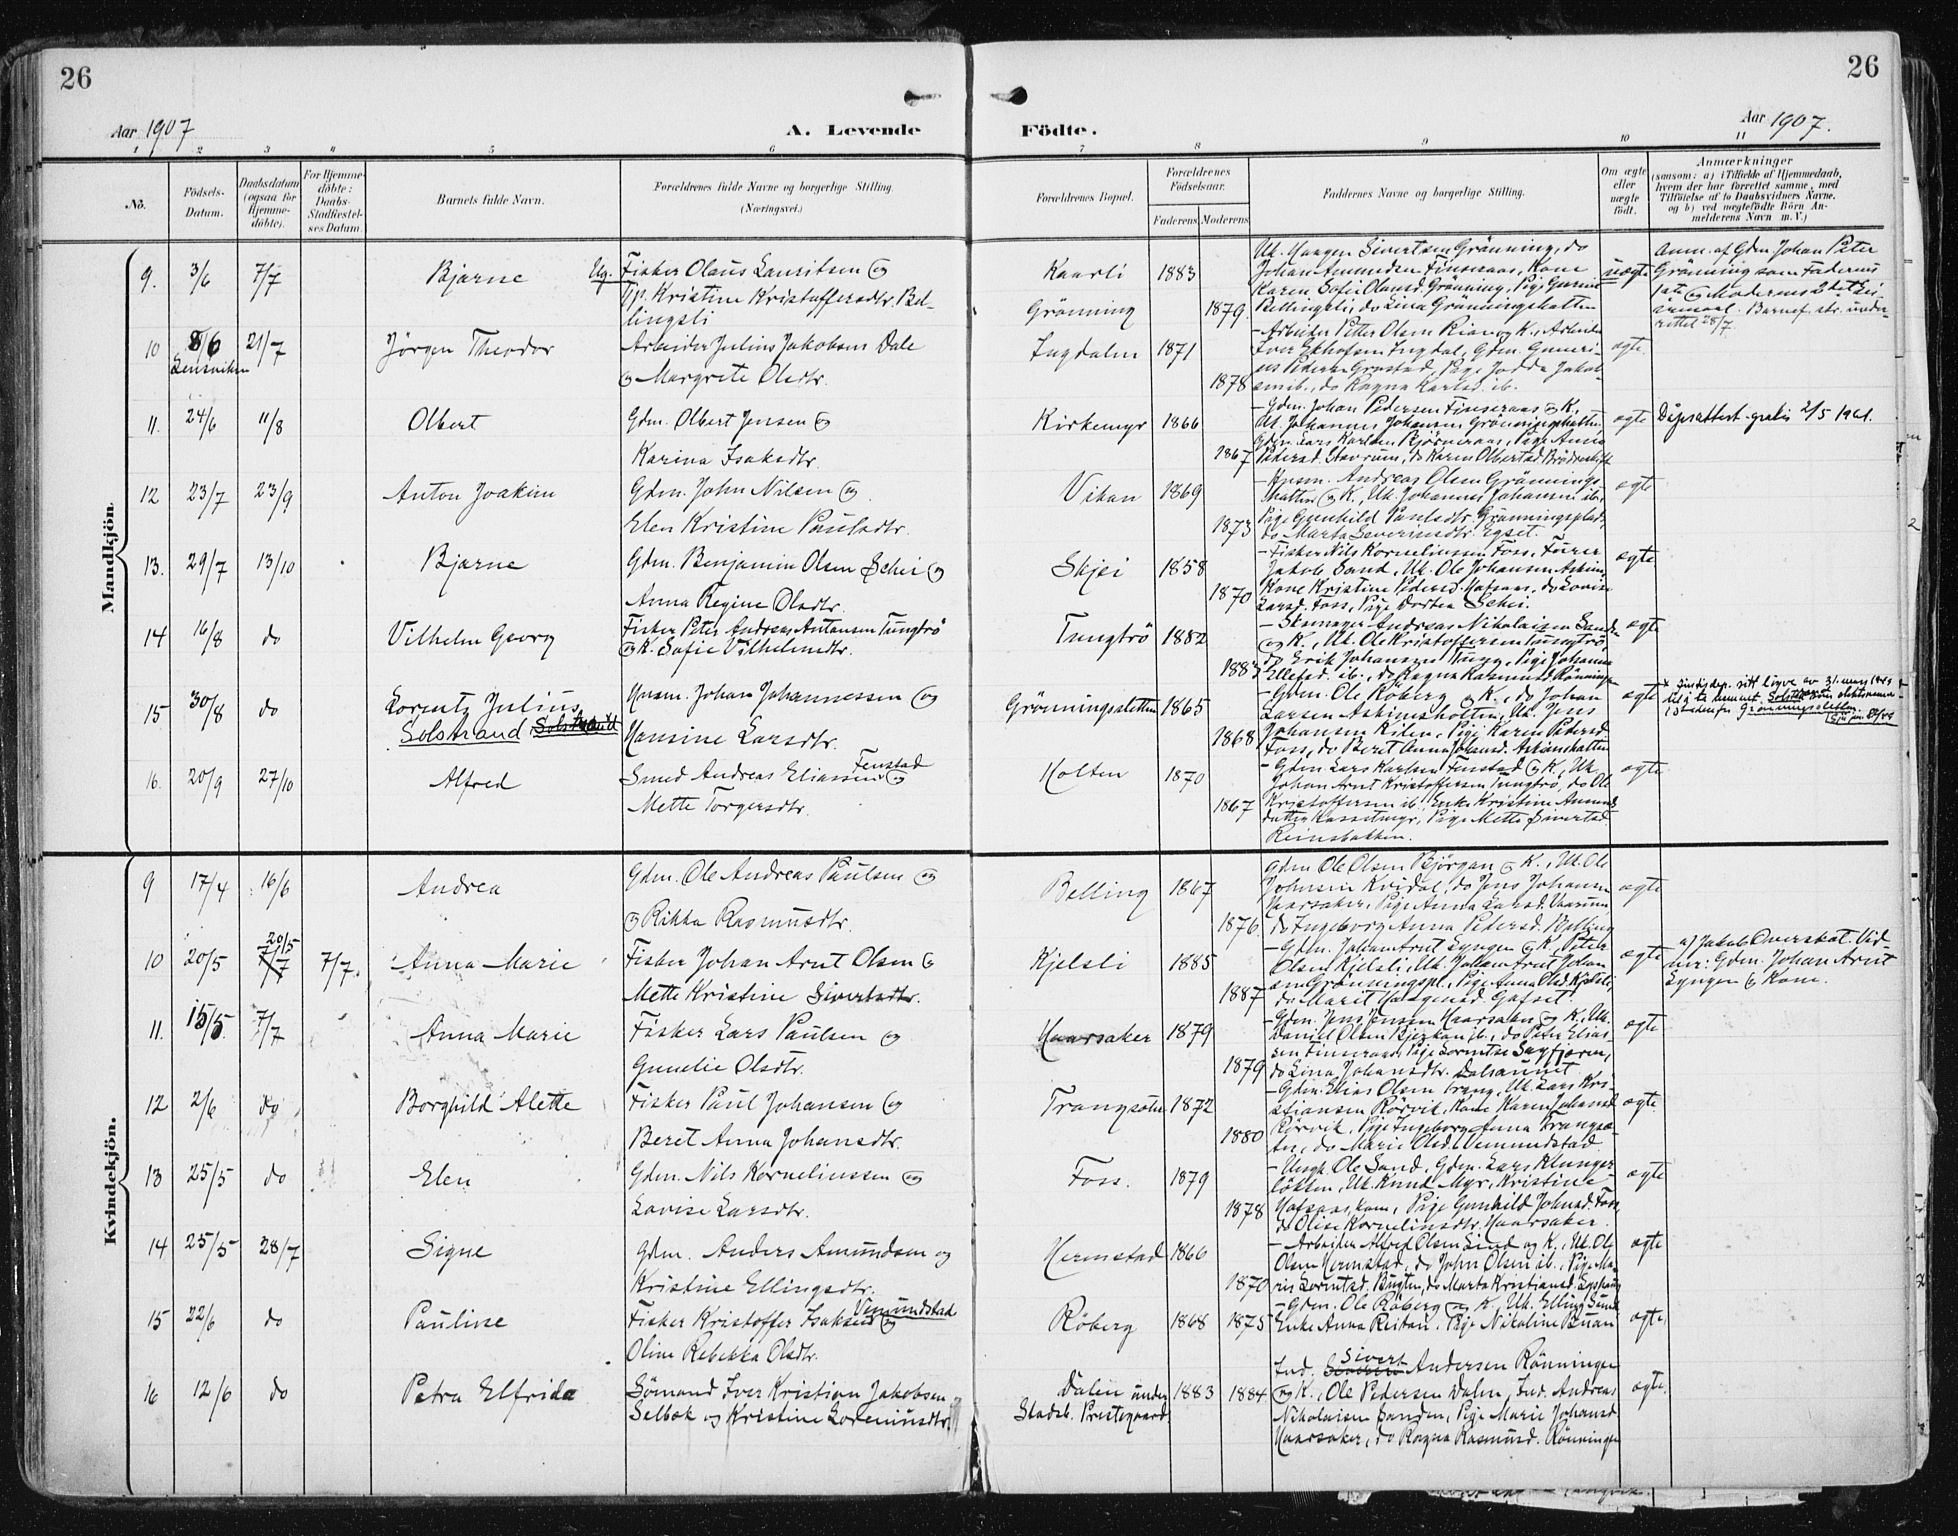 26
26
Aar 1907
A. Levende
Födte.
Aar 1907.
1 2 3 4 5 6 7 8 9 10 11
No.
Födsels-
Datum.
Daabsdatum
(ogsaa for
Hjemme-
döbte).
For Hjemme-
döbte:
Daabs-
Stadfæstel-
ses Datum.
Barnets fulde Navn.
Forældrenes fulde Navne og borgerlige Stilling.
(Næringsvei.)
Forældrenes Bopæl.
Forældrenes
Födselsaar.
Faderens
Moderens
Faddernes Navne og borgerlige Stilling.
Om ægte
eller
uægte
födt.
Anmærkninger
(saasom: a) i Tilfælde af Hjemmedaab,
hvem der har forrettet samme, med
Tilföielse af to Daabsvidners Navne,
og b) ved uægtefödte Börn An-
melderens Navn m. V.)
Mandkjön.
9. 3/6 7/7 Bjarne
Ug. Fisker Olaus Lauritsen og
Pp. Kristine Kristoffersdtr. Bel-
lingsli
Kaarli 1883
Grönning 1879.
Uk. Haagen Sivertsen Grönning, do
Johan Amundsen Finseraas, Kone
Karen Sofie Olausd. Grönning, Pige Gurine
Bellingsli, do Lina Grönningshatten
uægte
Anm. af Gdm. Johan Peter
Grönning som Faderens
1ste og Moderens 2det Lei-
ermaal. Barnef. str. unde-
rettet 28/7.
10 8/6 21/7 Jörgen Theodor
Lensviken
Arbeider Julius Jakobsen Dale
og Margrete Olsdtr.
Ingdalen 1871
1878
- Arbeider Petter Olsen Rian og K., Arbeider
ægte
11. 24/6 11/8 Olbert
Gdm. Olbert Jensen og
Karina Isaksdtr.
Kirkemyr 1866
1867
- Gdm. Johan Pedersen Finseraas og K.,
Uk. Johannes Johansen Grönningshatten,
Gdm. Lars Karlsen Björneraas, Pige Anna
Pedersd. Stavrum, do Karen Olbertsd.
ægte
Dåpsattest gratis 2/5 1961.
12 23/7 23/9 Anton Joakim
Gdm. John Nilsen og
Elen Kristine Paulsdtr.
Vikan 1869
1873
- Husm. Andreas Olsen Grönnings-
hatten og K., Uk. Johannes Johansen ib.,
Pige Gunhild Paulsdtr. Grönningsplads,
do Marta Severinsdtr. Egset.
ægte
13. 29/7 13/10 Bjarne
Gdm. Benjamin Olsen Schei og
Anna Regine Olsdtr.
Skjei 1858
1870
- Fisker Nils Kornelinssen Foss, Fürer
Jakob Sand, Uk. Ole Johansen Askim,
Kone Kristine Pedersd. Hofsaas, do Lovise
Larsd. Foss, Pige Dortea Schei.
ægte
14 16/8 do Vilhelm Georg
Fisker Peter Andreas Antonsen Tungtrö
og K. Sofie Vilhelmsdtr.
Tungtrö 1882
1883
- Skomager Andreas Nikolaisen Sanden
og K., Uk. Ole Kristoffersen Tungtrö,
do Erik Johansen Tung, Pige Johanna
Ellefsd. ib., do Ragna Rasmusd. Rönningen
ægte
15 30/8 do Lorentz Julius
Solstrand Solstrand
Husm. Johan Johannessen og
Hansine Larsdtr.
Grönningsletten 1865
1868
- Gdm. Ole Röberg og K., do Johan
Larsen Askimsholten, Uk. Jens
Johansen Kiden, Pige Karen Petersd.
Foss, do Beret Anna Johansd. Askimshatten
ægte
16. 20/9 27/10 Alfred
Smed Andreas Eliassen Fenstad og
Mette Torgersdtr.
Holten 1870
1867
- Gdm. Lars Karlsen Fenstad og K., Uk.
Johan Arnt Kristoffersen Tungtrö, do Ole
Kristoffersen ib., Enke Kristine Amunds-
datter Hassetmyr, Pige Mette Sivertsd.
Reinsbakken.
ægte
Kvindekjön.
9 17/4 16/6 Andrea
Gdm. Ole Andreas Paulsen og
og Rikka Rasmusdtr.
Belling 1867
1876.
Gdm. Ole Olsen Björgan og K., Uk. Ole
Johnsen Kvidal, do Jens Johansen
Haarsaker, Pige Anna Larsd. Vaarum
do Ingeborg Anna Pedersd. Belling
ægte
10 20/5 20/5 7/7 7/7. Anna Marie
Fisker Johan Arnt Olsen og
Mette Kristine Sivertsdtr.
Kjelsli 1885
1887
- Gdm. Johan Arnt Lyngen og K., Peter
Olsen Kjelsli, Uk. Johan Arnt Johan-
sen Grönningspl., Pige Anna Olsd. Kjelsli,
do Marit
ægte
a) Jakob Overskot. Vid-
ner: Gdm. Johan Arnt
Lyngen og Kone.
11. 15/5. 7/7 Anna Marie
Fisker Lars Paulsen og
Gunelie Olsdtr.
Haarsaker 1879
1879
- Gdm. Jens Jensen Haarsaker og K., Uk.
Daniel Olsen ib., do Peter Elias-
sen Finseraas, Pige Lorentse Sagfjæren,
do Lina Johansdtr. Dalsaunet.
ægte
12 2/6 do Borghild Alette
Fisker Paul Johansen og
Beret Anna Johansdtr.
Trangsölen 1872
1880
- Gdm. Elias Olsen Trang, Uk. Lars Kri-
stiansen Rörvik, Kone Karen Johansd.
Rörvik, Pige Ingeborg Anna Trangsö-
len, do Marie Olsd. Vemundstad
ægte
13 25/5 do Elen
Gdm. Nils Kornelinssen og
Lovise Larsdtr.
Foss. 1879
1878
- Ungk. Ole Sand, Gdm. Lars Klunger-
lökken, Uk. Knud Myr, Kristine
Hofsaas kone, Pige Gunhild Johnsd. Foss,
do Olise Kornelinsdtr. Haarsaker.
ægte
14 25/5 28/7 Signe
Gdm. Anders Amundsen og
Kristine Ellingsdtr.
Hermstad 1866
1870
- Arbeider Alfred Olsen Sind og K., Uk. Ole
Olsen Hermstad, do John Olsen ib., Pige Ma-
rie Lorentsd. Bugten, do Marta Kristiansd.
ægte
15 22/6 do Pauline
Fisker Kristoffer Isaksen Vemundstad og
Oline Rebekka Olsdtr.
Röberg 1868 1875
- Gdm. Ole Röberg og K., Uk. Elling Sund
Enke Anna Reitan. Pige Nikoline Buan
ægte.
16 12/6 do Petra Elfrida
Sömand Iver Kristian Jakobsen
Selbek og Kristine Loreniusdtr.
Dalen under
Stadsb. Prestegaard
1883 1884
Ind. Sivert Andersen Rönningen
og K., Ole Pedersen Dalen, Ind. Andreas
Nikolaisen Sanden, Pige Marie Johansd.
Haarsaker, do Ragna Rasmusd. Rönningen
ægte.